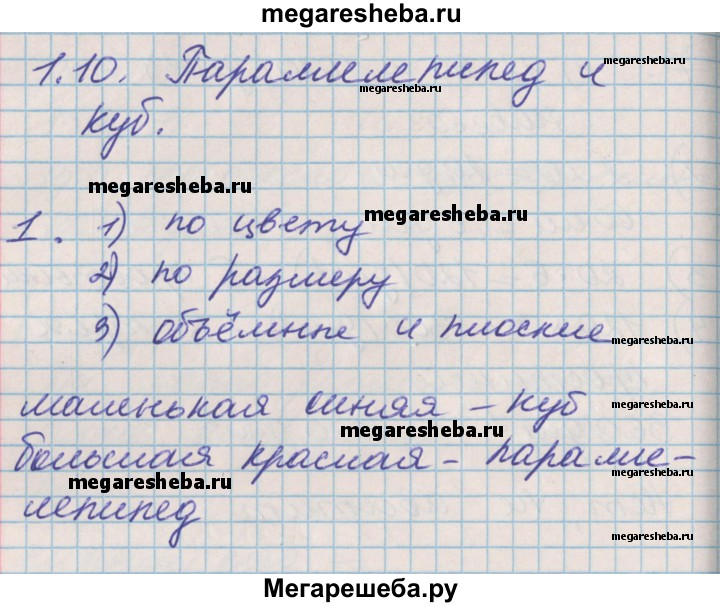 megaresheba.ru
1.10. Параллелепипед и
megaresheba.ru
megaresheba.ru
куб.
megaresheba.ru
1. 1) по цвету
megaresheba.ru
2) по размеру
3) объёмные и плоские
megaresheba.ru
маленькая синяя - куб
megaresheba.ru
megaresheba.ru
большая красная - паралле-
megaresheba.ru
лепипед
megaresheba.ru
Мегарешеба.ру